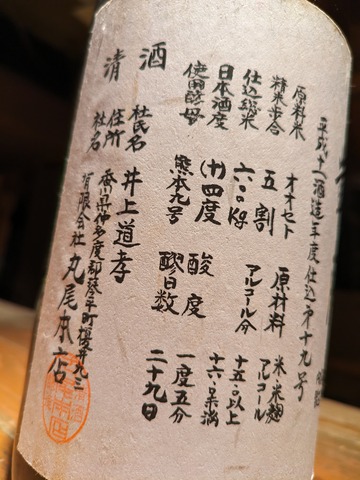 平成十一酒造年度仕込第十九号
原料米 オオセト 原材料 米・米麹
アルコール
精米歩合 五割 アルコール分 十五.〇以上
十六.〇未満
仕込総米 六〇〇kg
日本酒度 (十)四度 酸度 一度五分
使用酵母 熊本九号 醪日数 二十九日
清酒
杜氏名 井上道孝
住所 香川県仲多度郡琴平町榎井九三
社名 有限会社 丸尾本店